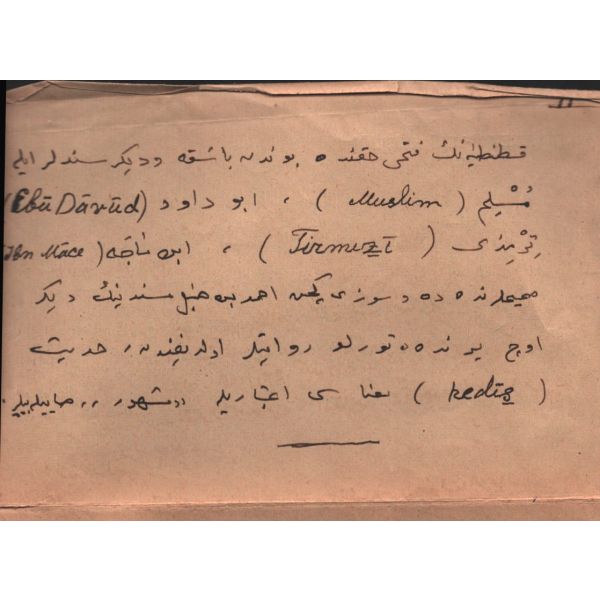 قسطنطينيه نك فتحى حقنده بوندن باشقه و ديكر سندلر ايله
مُسْلِم ( Muslim ) ، ابو داود (Ebū Dāvūd)
تِرْمِذى ( Tirmizī ) ، ابن مَاجَه (Ibn Māce)
ده و سوزى كچن احمد بن حنبل مسندينك ديكر
اوچ يرنده ده تورلو روايتلر اولديغندن، حديث
( hedis ) معنا سى اعتباريله "مشهور" صاييلابيلير.